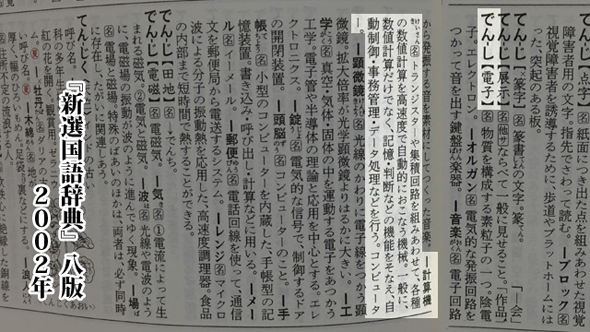 でん・じ［点字］名 紙面につき出た点を組みあわせた視覚
障害者用の文字。指先でさわって読む。ーブロック 名
視覚障害者を誘導するために、歩道やプラットホームには
った、突起のある板。
てん・じ［篆字］名 篆書の文字。篆。
てん・じ［展示］名 他サ ならべて一般に見せること。「作品」「―会」
でん・し［電子］名 物質を構成する素粒子の一つ。陰電
子。エレクトロン。ーオルガン 名 電気的な発振回路を
つかって音を出す鍵盤楽器。ー音楽 名 電子回路を
から発振する音を素材にしてつくった音楽。ー計算機
名 トランジスターや集積回路を組みあわせて、各種
の数値計算を高速度で自動的におこなう機械。一般に、
数値計算だけでなく、記憶・判断などの機能をそなえ、自
動制御・事務管理・データ処理などを行う。コンピュータ
ー。ー顕微鏡 名 光線のかわりに電子線をつかう顕
微鏡。拡大倍率が光学顕微鏡よりはるかに大きい。ー工
学 名 真空・気体・固体の中を運動する電子をあつかう
工学。電子管や半導体の理論と応用を中心とする。エレ
クトロニクス。ー錠 名 電気的な信号で、制御するドア
の開閉装置。ー頭脳 名 コンピューターのこと。ー手
帳 名 小型のコンピューターを内蔵した、手帳型の記
憶装置。書き込み・呼び出し・計算などに用いる。ーメー
ル 名 イーメール。ー郵便 名 電話回線を使って、通信
文を郵便局から電送するシステム。ーレンジ 名 マイクロ
波による分子の振動熱を応用した、高速度調理器。食品
の内部まで短時間で熱することができる。
でん・じ［田地］名 ⇨でんち。
でん・じ［電磁］名 ー気 名 ①電流によって生
まれる磁気。②電気と磁気。ー波 名 光線や電波のよう
に、電磁場の振動が波のように進んでゆく現象。ー場
名 電場と磁場。特殊のばあいのほかは、両者は、必ず同時
に存在し、たがいに関連しあう。
『新選国語辞典』八版
２００２年